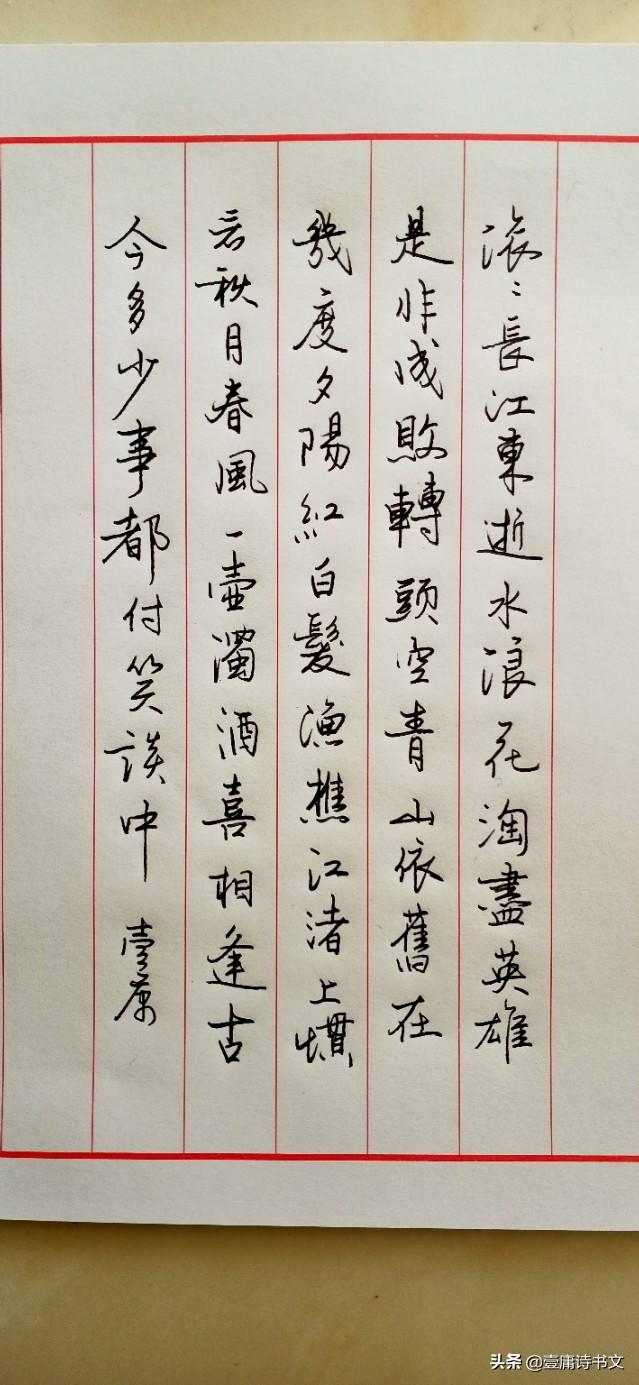 滚〻長江東逝水浪花淘盡英雄
是非成敗轉頭空青山依舊在
幾度夕陽紅白髮漁樵江渚上慣
看秋月春風一壺濁酒喜相逢古
今多少事都付笑談中 壹庸
头条 @壹庸诗书文